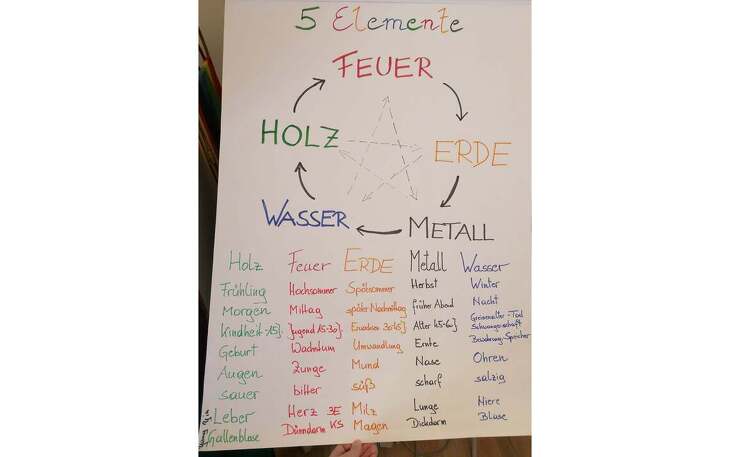 5 Elemente
FEUER
HOLZ
ERDE
WASSER
METALL
Holz Feuer ERDE Metall Wasser
Frühling Hochsommer Spätsommer Herbst Winter
Morgen Mittag später Nachmittag früher Abend Nacht
Kindheit -15J. Jugend 15-30J. Erwachsen 30-45J. Alter 45-60J Greisenalter-Tod
Schwangerschaft
Geburt Wachstum Umwandlung Ernte Bewahrung-Speicher
Augen Zunge Mund Nase Ohren
sauer bitter süß scharf salzig
Leber Herz 3E Milz Lunge Niere
Gallenblase Dünndarm KS Magen Dickdarm Blase